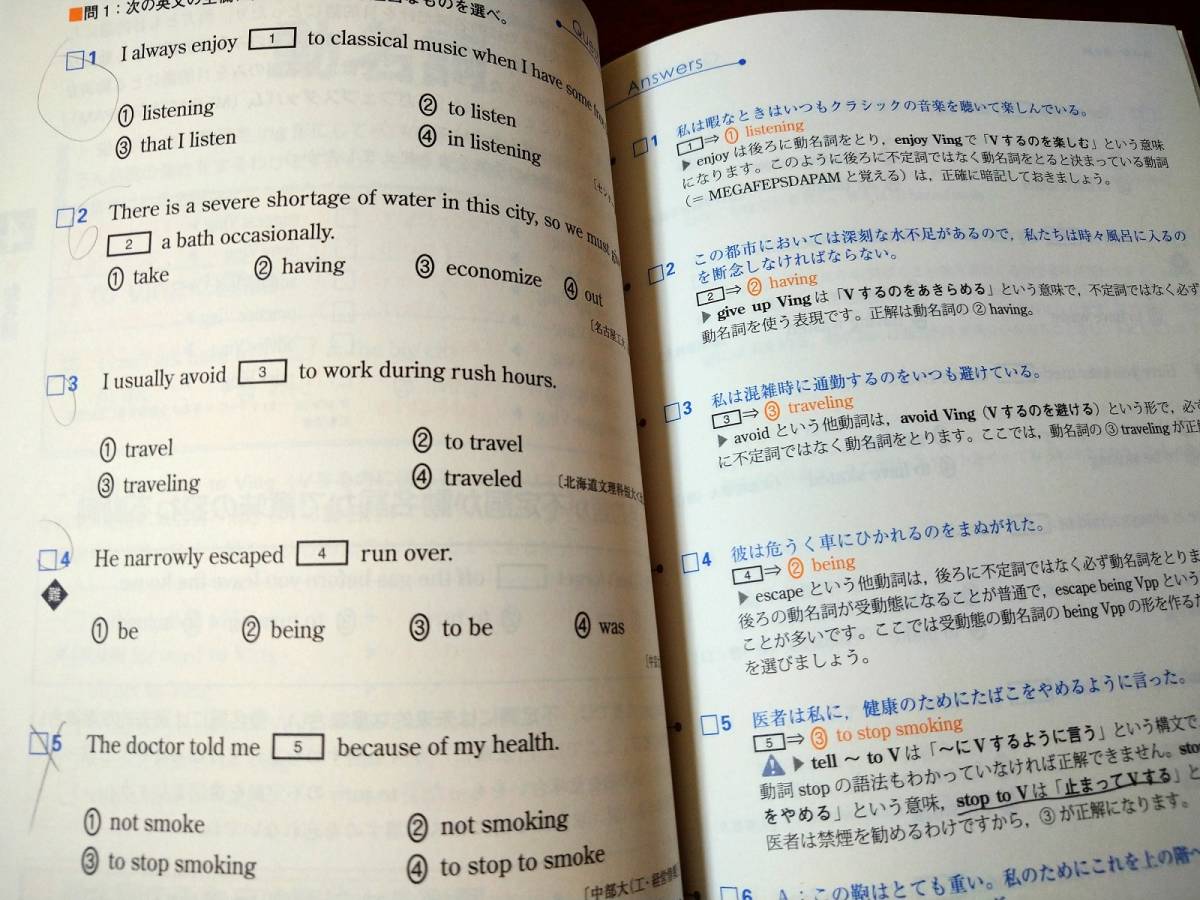 ■問1：次の英文の
なものを選べ。
Ques
□1 I always enjoy [1] to classical music when I have some
① listening ② to listen
③ that I listen ④ in listening
□2 There is a severe shortage of water in this city, so we must
[2] a bath occasionally.
① take ② having ③ economize ④ out
〔名古屋工大
□3 I usually avoid [3] to work during rush hours.
① travel ② to travel
③ traveling ④ traveled
〔北海道文理科短大
□4 He narrowly escaped [4] run over.
難
① be ② being ③ to be ④ was
□5 The doctor told me [5] because of my health.
① not smoke ② not smoking
③ to stop smoking ④ to stop to smoke
〔中部大（工・経営情報）
Answers
□1 私は暇なときはいつもクラシックの音楽を聴いて楽しんでいる。
[1]⇒ ① listening
▶ enjoy は後ろに動名詞をとり，enjoy Ving で「V するのを楽しむ」という意味
になります。このように後ろに不定詞ではなく動名詞をとると決まっている動詞
（＝ MEGAFEPSDAPAM と覚える）は，正確に暗記しておきましょう。
□2 この都市においては深刻な水不足があるので，私たちは時々風呂に入るの
を断念しなければならない。
[2]⇒ ② having
▶ give up Ving は「V するのをあきらめる」という意味で，不定詞ではなく必ず
動名詞を使う表現です。正解は動名詞の ② having。
□3 私は混雑時に通勤するのをいつも避けている。
[3]⇒ ③ traveling
▶ avoid という他動詞は，avoid Ving（V するのを避ける）という形で，必ず
に不定詞ではなく動名詞をとります。ここでは，動名詞の ③ traveling が正
□4 彼は危うく車にひかれるのをまぬがれた。
[4]⇒ ② being
▶ escape という他動詞は，後ろに不定詞ではなく必ず動名詞をとりま
後ろの動名詞が受動態になることが普通で，escape being Vpp という
ことが多いです。ここでは受動態の動名詞の being Vpp の形を作るた
を選びましょう。
□5 医者は私に，健康のためにたばこをやめるように言った。
[5]⇒ ③ to stop smoking
▶ tell ～ to V は「～に V するように言う」という構文で
動詞 stop の語法もわかっていなければ正解できません。sto
をやめる」という意味，stop to V は「止まって V する」と
医者は禁煙を勧めるわけですから，③ が正解になります。
□6 A：この鞄はとても重い。私のためにこれを上の階へ